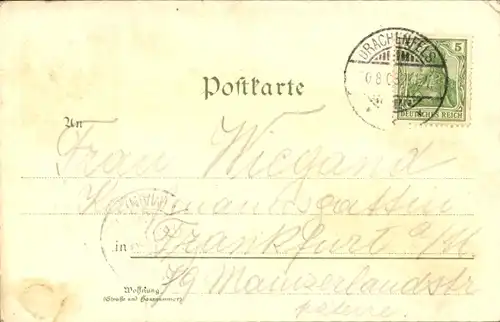 DRACHENFELS
5
DEUTSCHES REICH
Postkarte
An
Frau Wiegand
Kaufmannsgattin
in Frankfurt a/M
79 Mainzerlandstr
Wohnung
(Straße und Hausnummer)